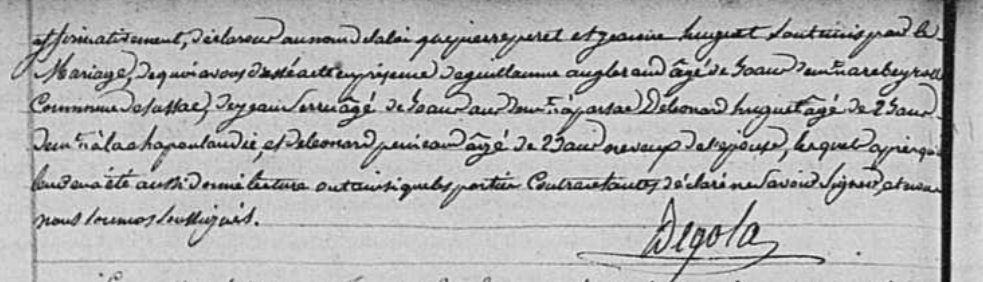 affirmativement, déclarons au nom de la loi que pierre peret et jeanne huguet sont unis par le
Mariage, de quoi avons dressé acte en présence de guillaume angleraud âgé de 30 ans demt. à
Commune de sussac, de jean âgé de ans demt. à Deleonard huguet âgé de 23 ans
demt. à la chapoulaudie, et deleonard âgé de 23 ans neveux de l'epouse, lesquels apres qu'il
leur en a été aussi donné lecture ont ainsi que les parties Contractantes déclaré ne savoir Signer, et nous
nous sommes soussignés.
Degola